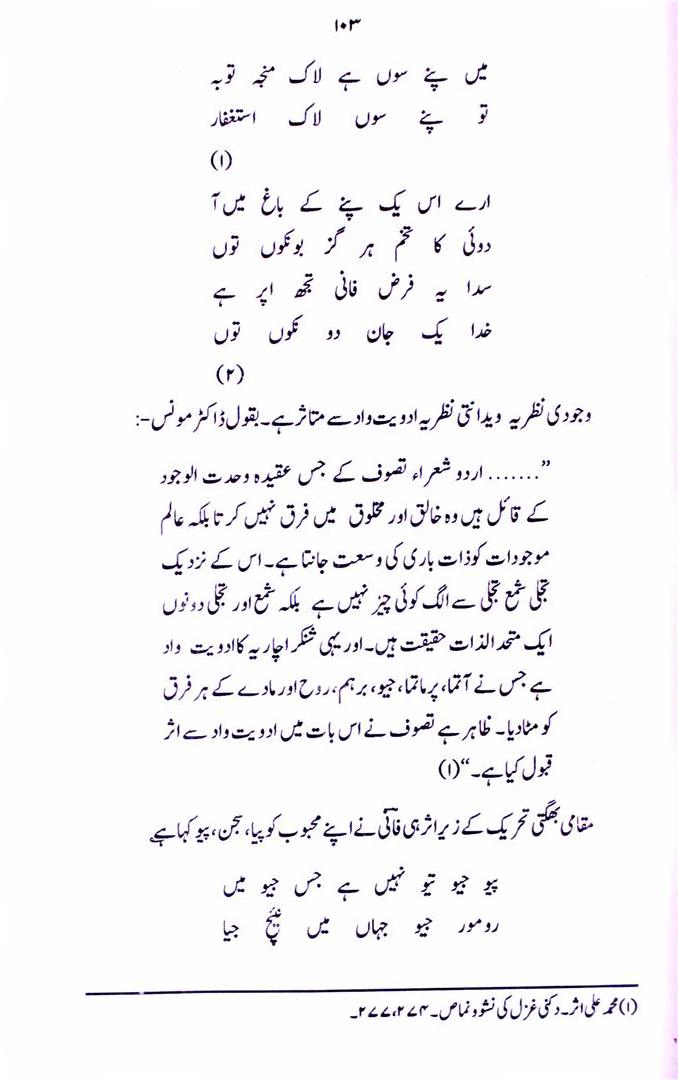 ۱۰۳
میں پنے سوں ہے لاک منجہ توبہ
تو پنے سوں لاک استغفار
(۱)
ارے اس یک پنے کے باغ میں آ
دوئی کا تخم ہر گز بونکوں توں
سدا یہ فرض فانی تجھ اپر ہے
خدا یک جان دو نکوں توں
(۲)
وجودی نظریہ ویدانتی نظریہ ادویت واد سے متاثر ہے۔ بقول ڈاکٹر مونس :-
”....... اردو شعراء تصوف کے جس عقیدہ وحدت الوجود
کے قائل ہیں وہ خالق اور مخلوق میں فرق نہیں کرتا بلکہ عالم
موجودات کو ذات باری کی وسعت جانتا ہے۔ اس کے نزدیک
تجلی شمع تجلی سے الگ کوئی چیز نہیں ہے بلکہ شمع اور تجلی دونوں
ایک متحد الذات حقیقت ہیں۔ اور یہی شنکر اچاریہ کا ادویت واد
ہے جس نے آتما، پرماتما، جیو، برہم، روح اور مادے کے ہر فرق
کو مٹا دیا۔ ظاہر ہے تصوف نے اس بات میں ادویت واد سے اثر
قبول کیا ہے۔“ (۱)
مقامی بھگتی تحریک کے زیر اثر ہی فانی نے اپنے محبوب کو پیا، سجن، پیو کہا ہے
پیو جیو تیو نہیں ہے جس جیو میں
رومور جیو جہاں میں جیا
(۱) محمد علی اثر۔ دکنی غزل کی نشوونما ص۔ ۲۷۷،۲۷۴۔